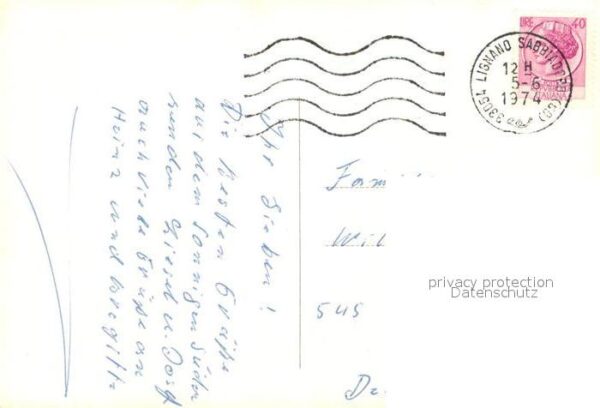 LIRE 40
33054 LIGNANO SABBIADORO (UD)
12 H
5-6
1974
Ihr Lieben!
Die besten Grüße
aus dem sonnigen Süden
senden Liesel u. Josef
auch viele Grüße an
Heinz und Brigitte
Fam
Wil
545
privacy protection
Datenschutz